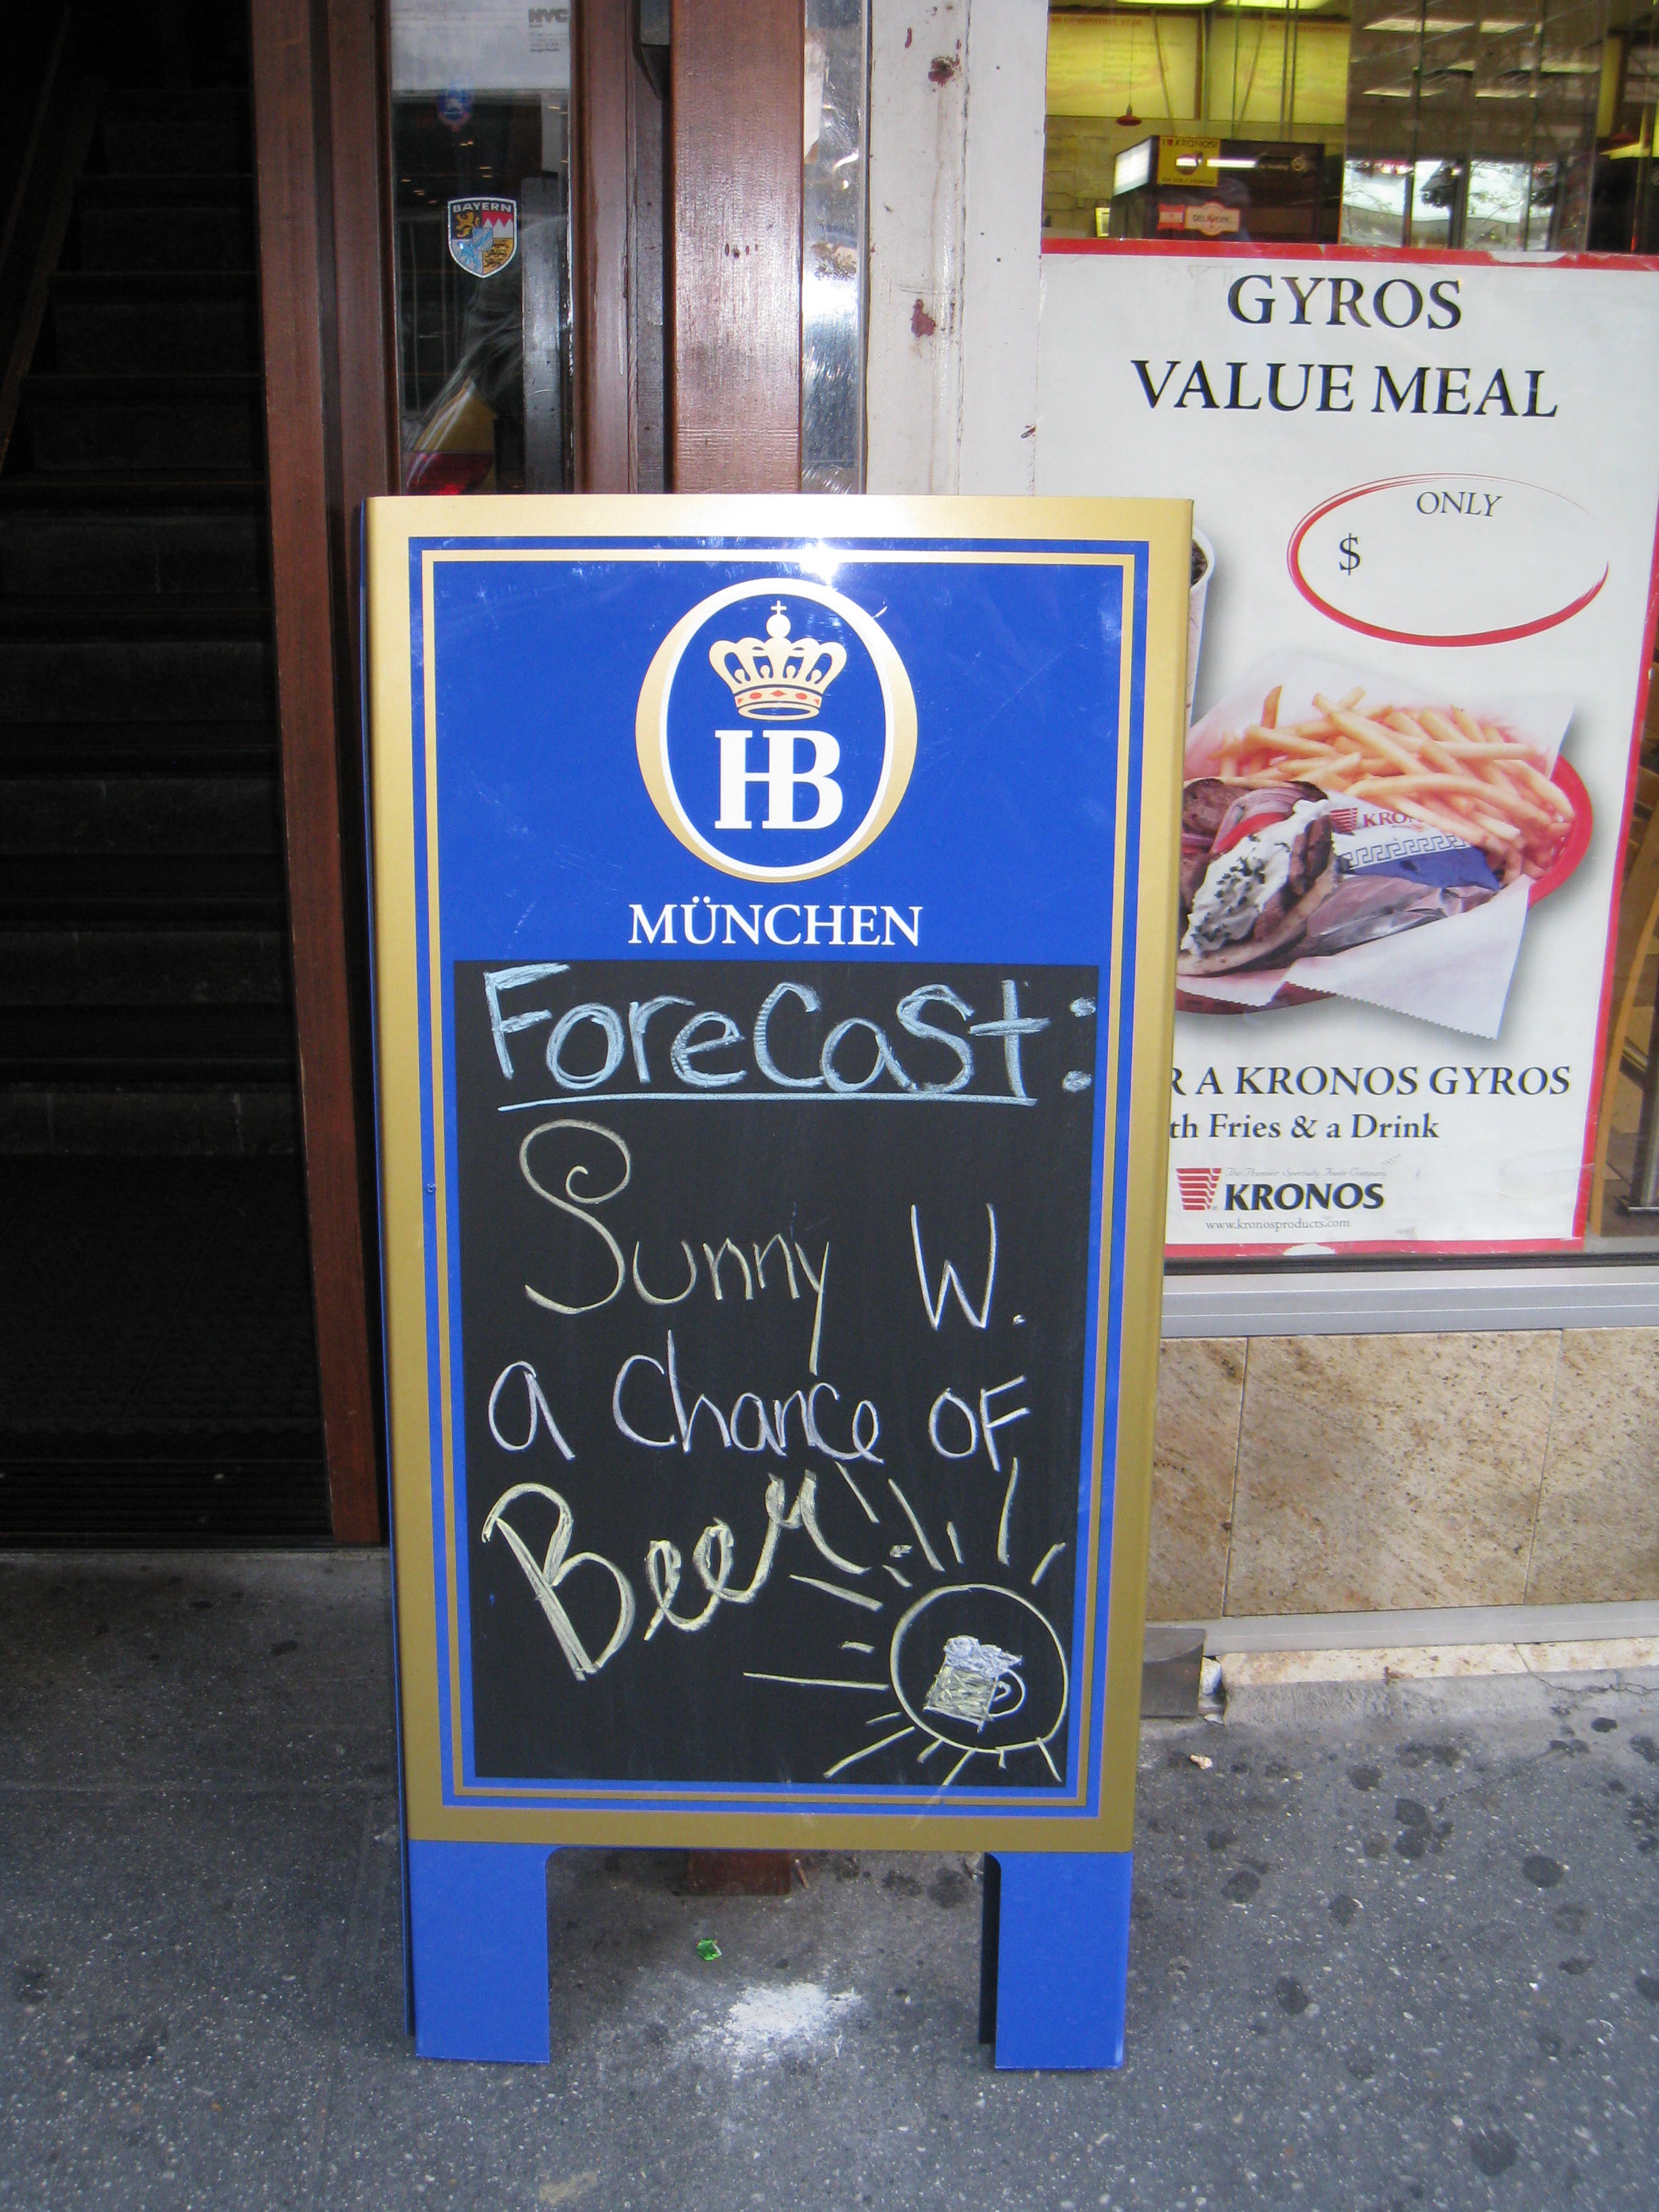 NYC
BAYERN
I ♥ KRONOS!
DELIVERY
GYROS
VALUE MEAL
ONLY
$
KRO
R A KRONOS GYROS
th Fries & a Drink
The Premier Specialty Foods Company
KRONOS
www.kronosproducts.com
HB
MÜNCHEN
ForeCast:
Sunny W.
a Chance OF
Beer!